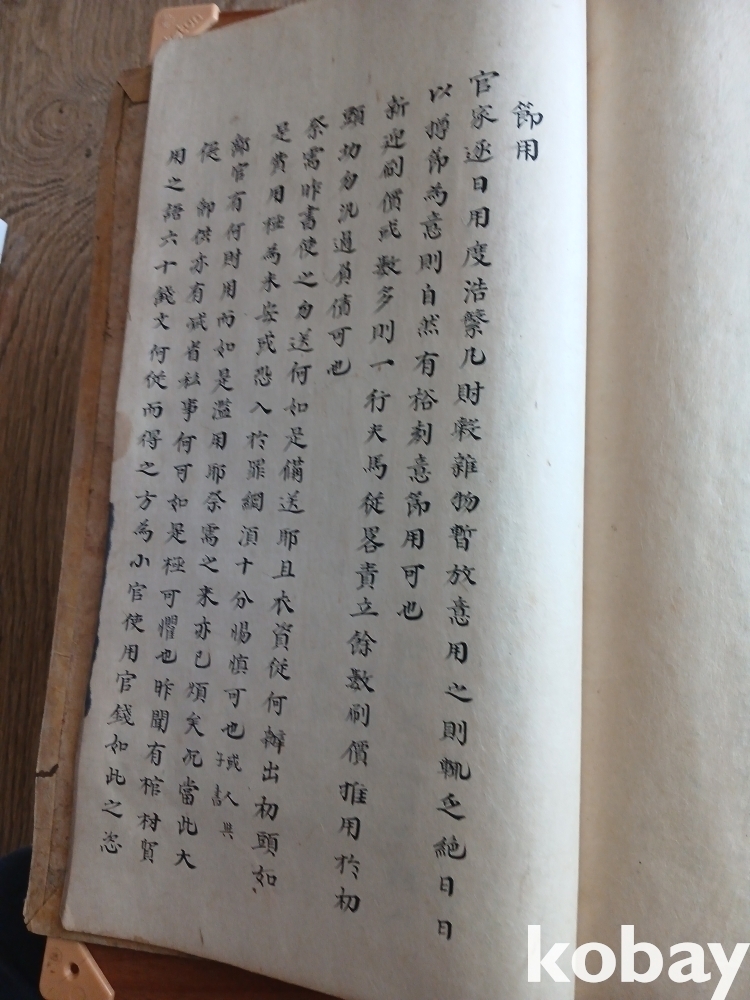 節用
官家逐日用度浩繁凡財穀雜物暫放意用之則輒乏絶日日
以撙節爲意則自然有裕刻意節用可也
新迎刷價或數多則一行夫馬從畧責立餘數刷價推用於初
頭切勿汎過員債可也
祭需昨書使之勿送何如是備送耶且衣資從何辦出初頭如
是費用極爲未安或恐入於罪綱湏十分惕愼可也 或人與子書
鄰官有何財用而如是濫用耶祭需之來亦已煩矣况當此大
從 御供亦有减省私事何可如是極可懼也昨聞有棺材貿
用之語六十錢文何從而得之方爲小官使用官錢如此之恣
kobay